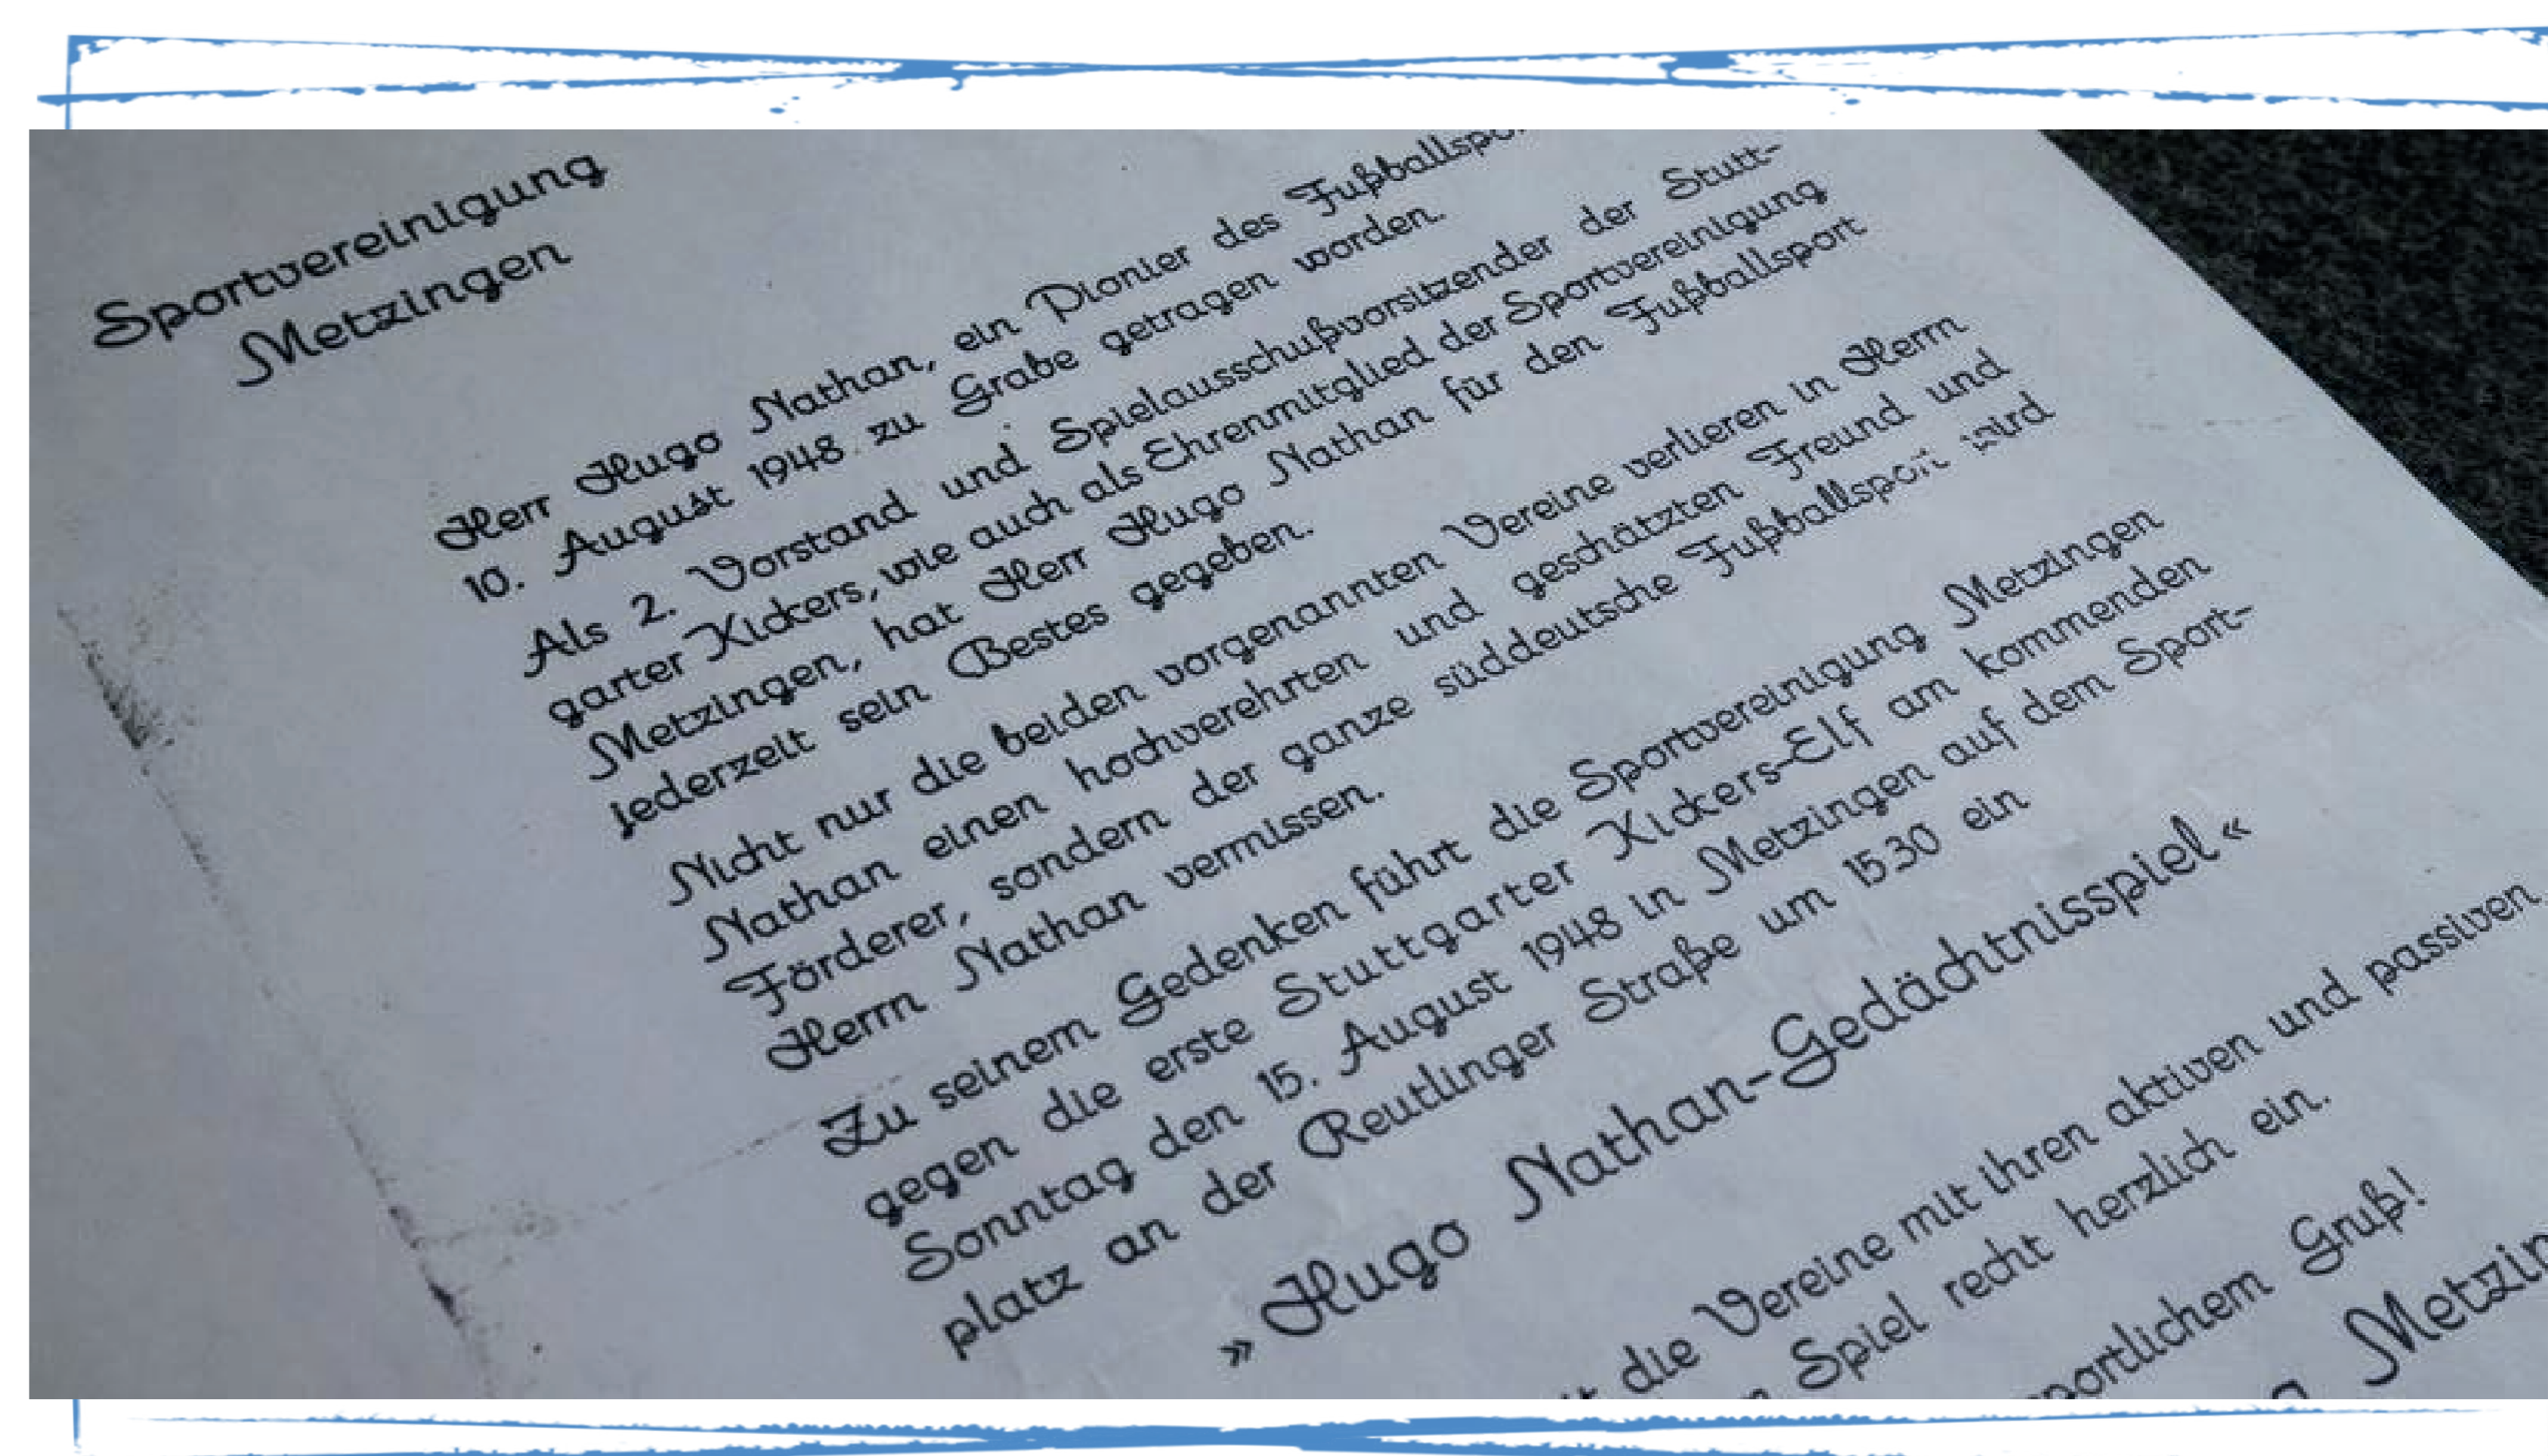 Sportvereinigung
Metzingen
Herr Hugo Nathan, ein Pionier des
10. August 1948 zu Grabe getragen worden.
Als 2. Vorstand und Spielausschußvorsitzender der Stutt-
garter Kickers, wie auch als Ehrenmitglied der Sportvereinigung
Metzingen, hat Herr Hugo Nathan für den Fußballsport
jederzeit sein Bestes gegeben.
Nicht nur die beiden vorgenannten Vereine verlieren in Herrn
Nathan einen hochverehrten und geschätzten Freund und
Förderer, sondern der ganze süddeutsche Fußballsport wird
Herrn Nathan vermissen.
Zu seinem Gedenken führt die Sportvereinigung Metzingen
gegen die erste Stuttgarter Kickers-Elf am kommenden
Sonntag den 15. August 1948 in Metzingen auf dem Sport-
platz an der Reutlinger Straße um 15.30 ein
» Hugo Nathan-Gedächtnisspiel «
die Vereine mit ihren aktiven und passiven
Spiel recht herzlich ein.
Gruß!